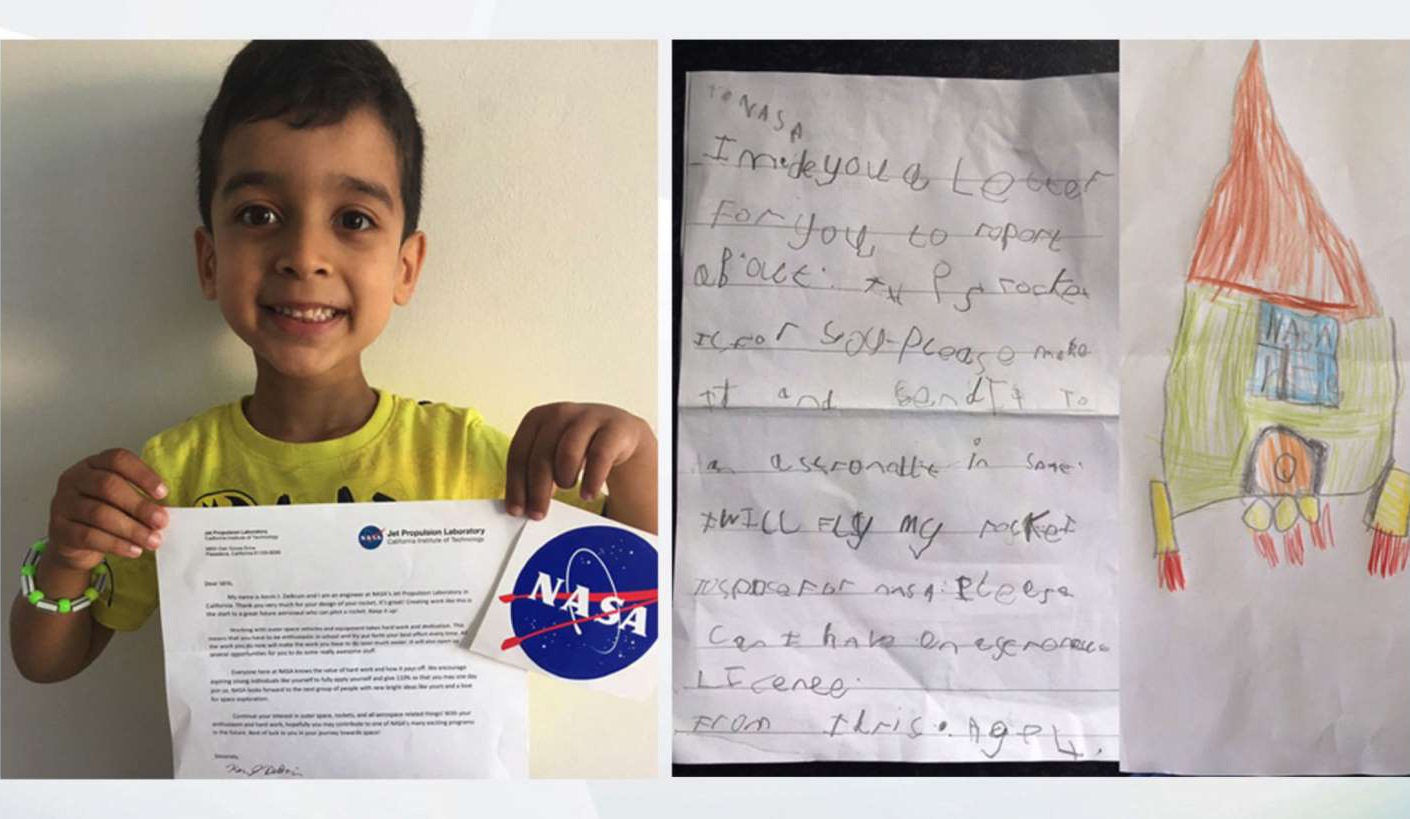 Jet Propulsion Laboratory
California Institute of Technology
4800 Oak Grove Drive
Pasadena, California 91109-8099
NASA
Jet Propulsion Laboratory
California Institute of Technology
Dear Idris,
My name is Kevin J. DeBruin and I am an engineer at NASA's Jet Propulsion Laboratory in
California. Thank you very much for your design of your rocket, it's great! Creating work like this is
the start to a great future astronaut who can pilot a rocket. Keep it up!
Working with outer space vehicles and equipment takes hard work and dedication. This
means that you have to be enthusiastic in school and try put forth your best effort every time. All
the work you do now will make the work you have to do later much easier. It will also open up
several opportunities for you to do some really awesome stuff.
Everyone here at NASA knows the value of hard work and how it pays off. We encourage
aspiring young individuals like yourself to fully apply yourself and give 110% so that you may one day
join us. NASA looks forward to the next group of people with new bright ideas like yours and a love
for space exploration.
Continue your interest in outer space, rockets, and all aerospace related things! With your
enthusiasm and hard work, hopefully you may contribute to one of NASA's many exciting programs
in the future. Best of luck to you in your journey towards space!
Sincerely,
NASA
TO NASA
I made you a Letter
For you to report
ab'out.
rocke
for you. please make
it and send it To
a astronatte in
I WILL FLY my rocket
Please
Can I have an
LIcence.
From Idris. Age 4.
NASA